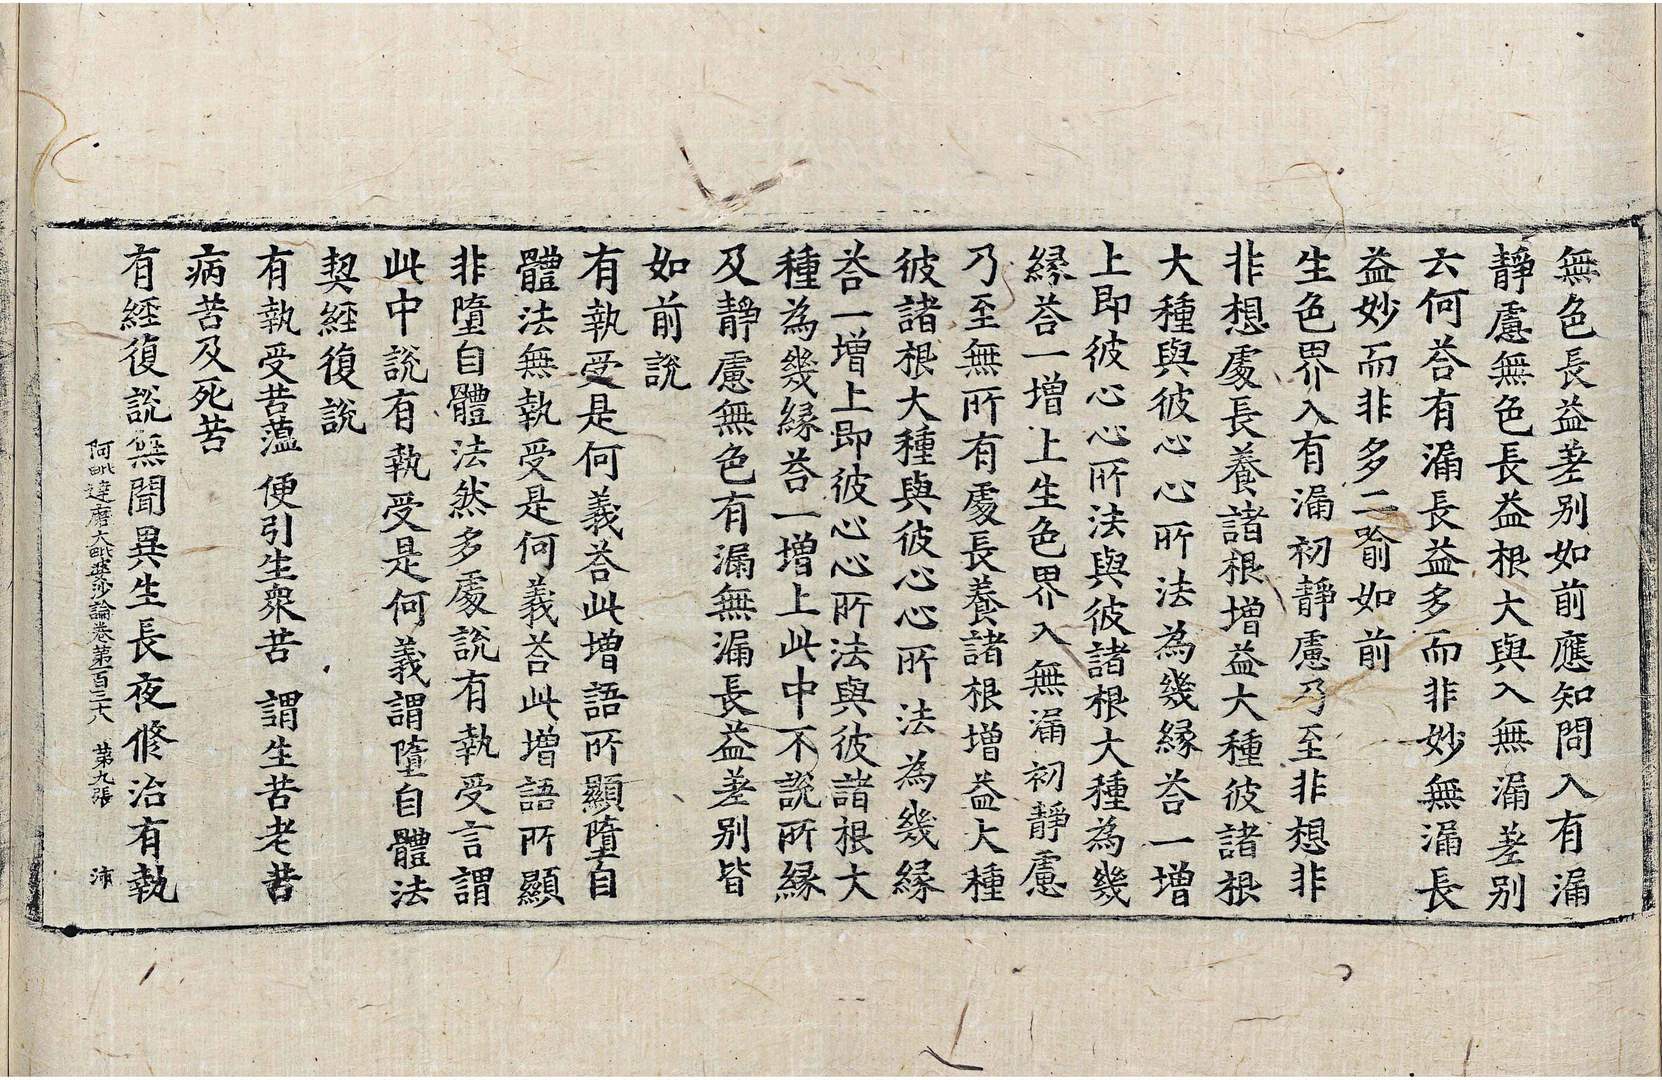 無色長益差別如前應知問入有漏
靜慮無色長益根大與入無漏差別
云何荅有漏長益多而非妙無漏長
益妙而非多二喻如前
生色界入有漏初靜慮乃至非想非
非想處長養諸根增益大種彼諸根
大種與彼心心所法為幾緣荅一增
上即彼心心所法與彼諸根大種為幾
緣荅一增上生色界入無漏初靜慮
乃至無所有處長養諸根增益大種
彼諸根大種與彼心心所法為幾緣
荅一增上即彼心心所法與彼諸根大
種為幾緣荅一增上此中不說所緣
及靜慮無色有漏無漏長益差別皆
如前說
有執受是何義荅此增語所顯墮自
體法無執受是何義荅此增語所顯
非墮自體法然多處說有執受言謂
此中說有執受是何義謂墮自體法
契經復說
有執受苦蘊 便引生衆苦 謂生苦老苦
病苦及死苦
有經復說無聞異生長夜修治有執
阿毗達磨大毗婆沙論卷第一百三十八 第九張 沛